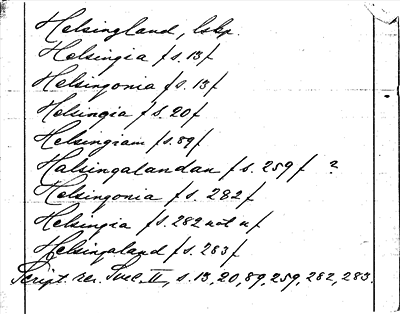 Helsingland, lskp.
Helsingia /s. 13/
Helsingonia /s. 13/
Helsingia /s. 20/
Helsingiam /s. 89/
Halsingalandan /s. 259/ ?
Helsingonia /s. 282/
Helsingia /s. 282 not u/
Helsingaland /s. 283/
Script. rer. Svec. II, s. 13, 20, 89, 259, 282, 283.